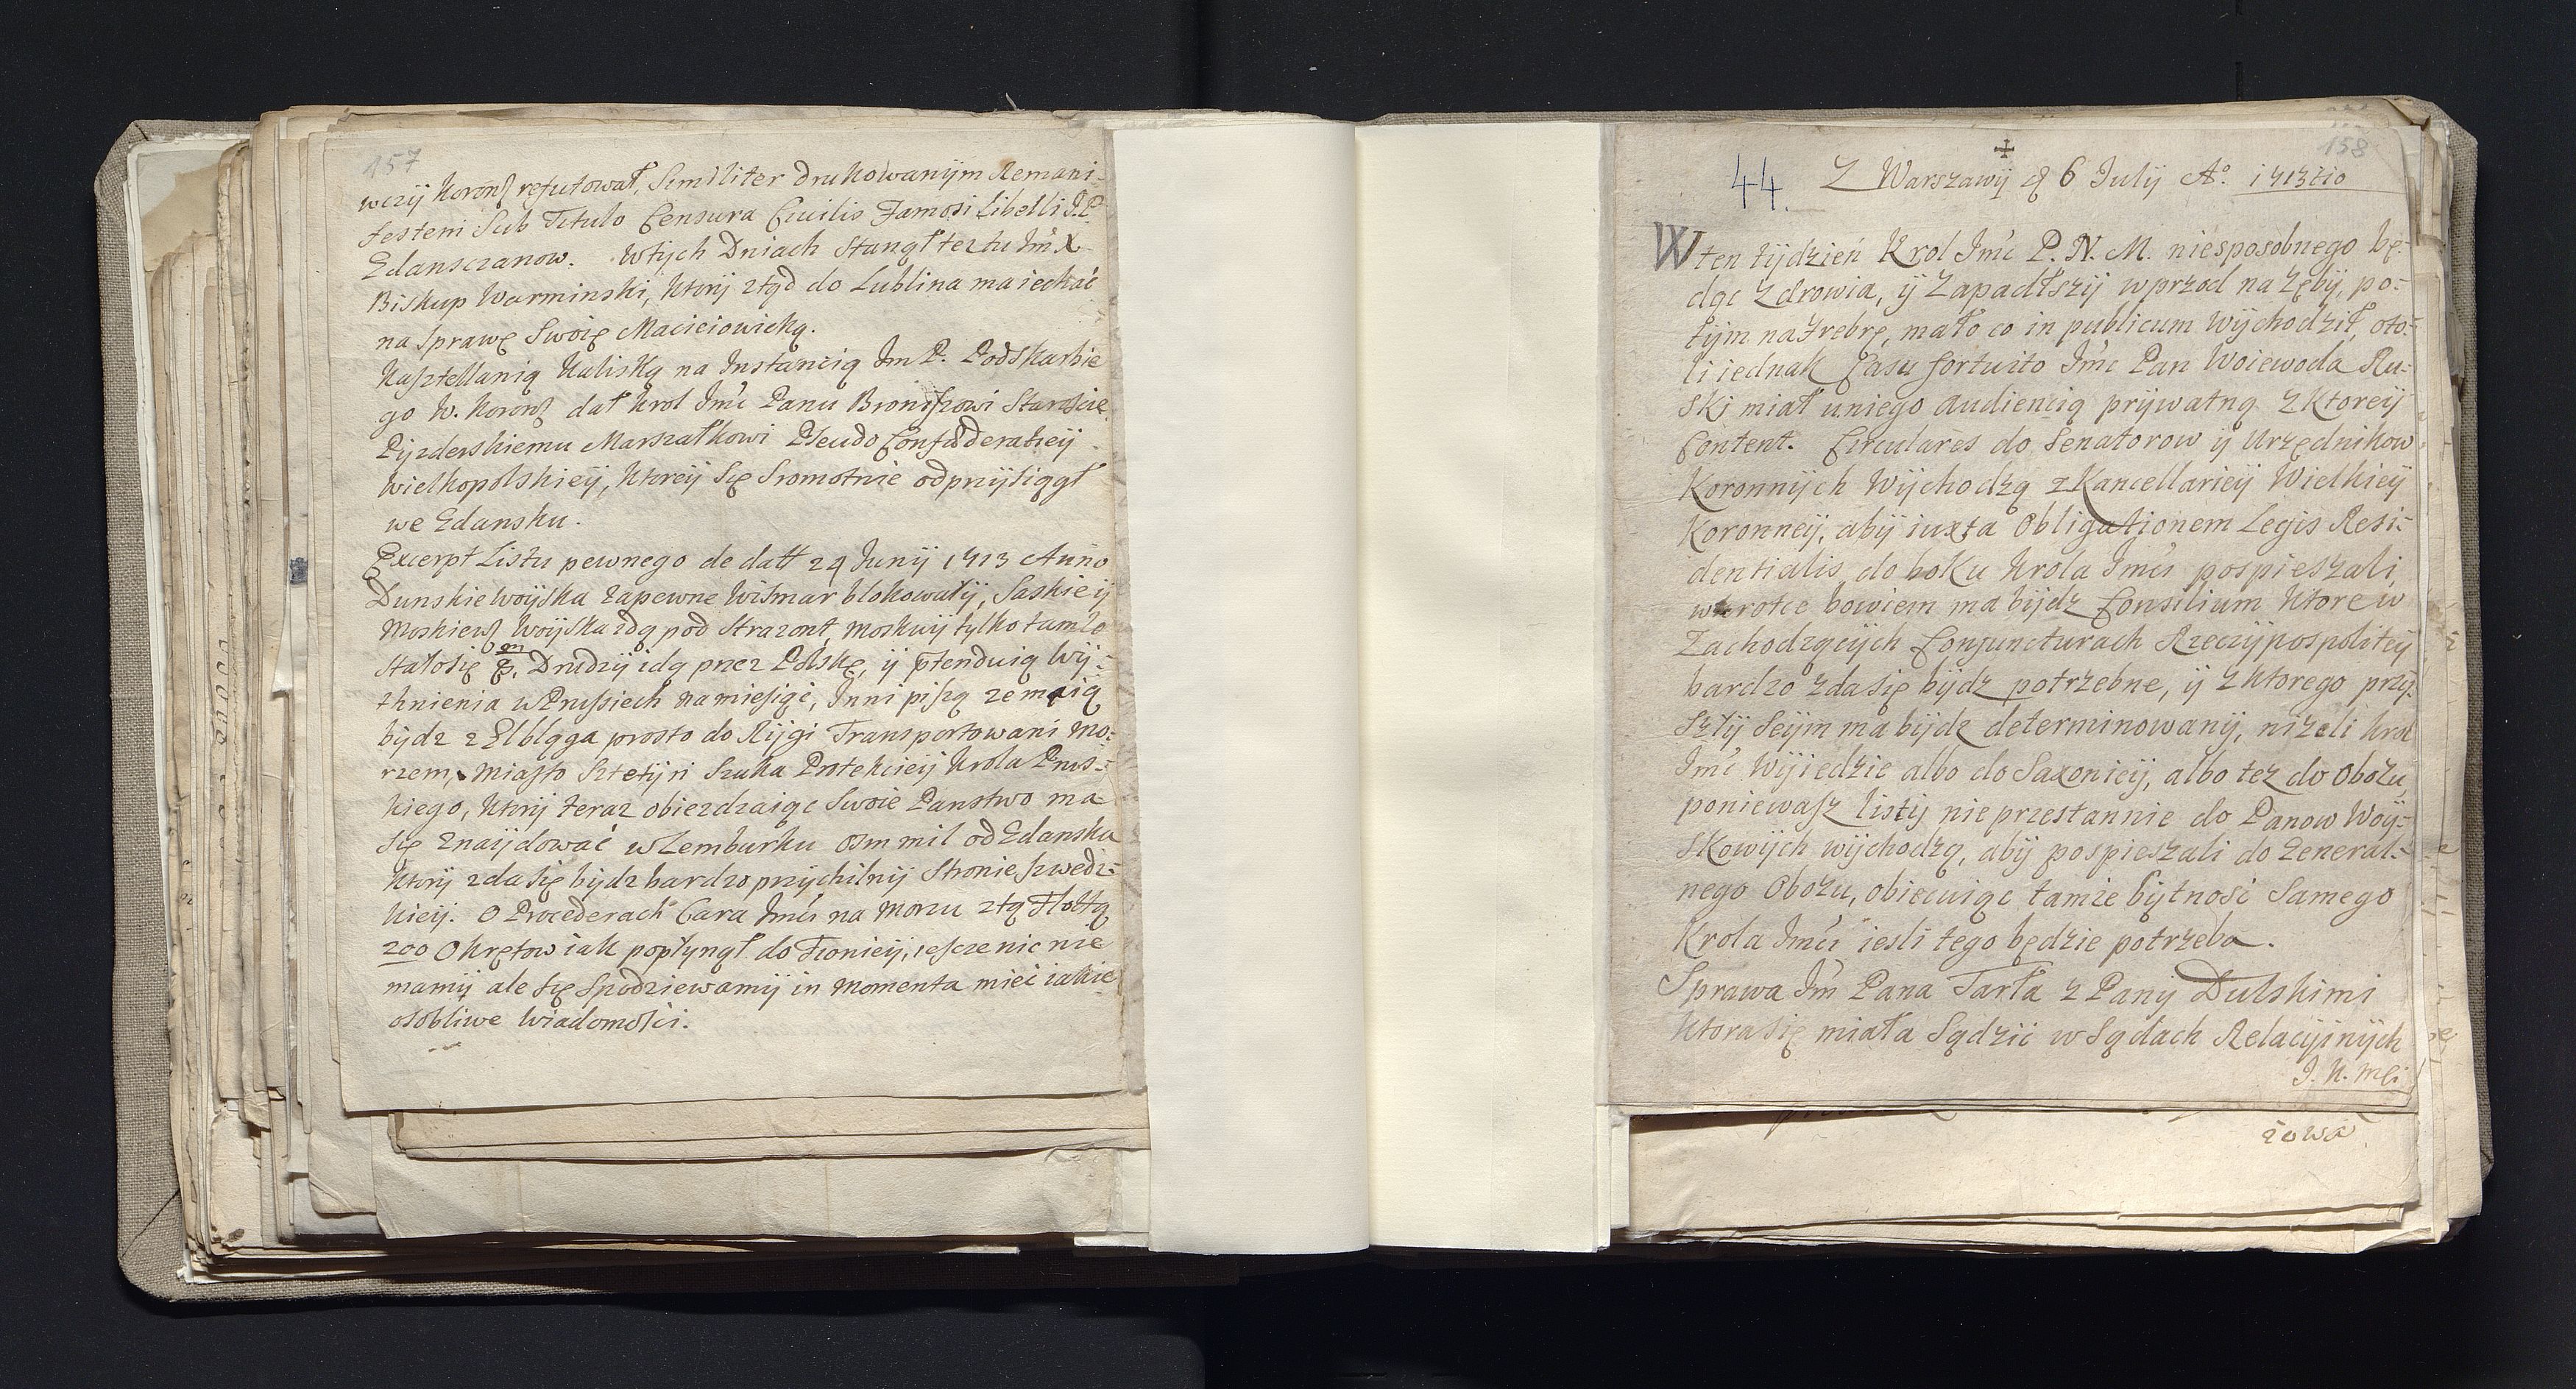 157
wczy Koronß refutował, Similiter drukowanym Remani-
festem Sub Titulo Censura Civilis Famosi Libelli J.P.
Gdansczanow. Wtych Dniach Stanął też tu Jm̃ X
Biskup Warminski, Ktorij ztąd do Lublina ma iechać
na Sprawę Swoię Macieiowicką.
Kasztellanią Kaliską na Instancią Jm P. Podskarbie
go W. Koronß dał Krol Jmć Panu Broniszowi Staroscie
Pijzderskiemu Marszałkowi Pseudo Confæderatieij
Wielkopolskieij, Ktoreij Się Sromotnie odprzijsiągł
we Gdansku.
Excerpt Listu pewnego de datt 24 Junij 1713 Anno
Dunskie Woijska zapewne Wismar blokowałij, Saskie ij
Moskiewß Woijska idą pod Strazont, Moskwij tylko tam 10
Stało się m̃. Drudzij idą przez Polskę, ij p̃tenduią Wij-
thnienia w Prusiech na miesiąc, Inni piszą że maią
bijdz z Elbląga prosto do Rijgi Transportowani mo-
rzem, Miasto Sztetijn Szuka Protekcieij Krola Prus-
kiego, Ktorij teraz obiezdzaiąc Swoie Panstwo ma
Się Znaijdować w Lemburku osm mil od Gdanska
Ktorij zda Się bijdz bardzo przijchilnij Stronie Szwedz-
kieij. O Procederach Cara Jmći na Morzu ztą Flottą
200 Okrętow iak popłynął do Fionieij, iescze nic nie
mamij ale Się Spodziewamij in momenta mieć iakie
osobliwe Wiadomości.
158
44. Z Warszawij d 6 Julij Aº. 1713tio
W ten tijdzień Krol Jmć P. N. M. niesposobnego bę-
dąc Zdrowia, ij Zapadłszij wprzod na Zębij, po-
tijm na Frebrę, mało co in publicum Wijchodził, oto-
li iednak Casu fortuito Jmć Pan Woiewoda Ru-
Ski miał uniego Audiencią prijwatną z Ktoreij
Content. Circulares do Senatorow ij Urzędnikow
Koronnijch Wijchodzą z Kancellarieij Wielkieij
Koronneij, abij iuxta Obligationem Legis Resi-
dentialis do boku Krola Jmći pospieszali,
wkrotce bowiem ma bijdz Consilium Ktore w
Zachodzącijch Conjuncturach Rzeczijpospoliteij
bardzo Zda Się bijdz potrzebne, ij z Ktorego przij-
Szłij Seijm ma bijdz determinowanij, nizeli Krol
Jmć Wijiedzie albo do Saxonieij, albo też do Obozu,
poniewasz listij nieprzestannie do Panow Woij-
Skowijch wijchodzą, abij pospieszali do General-
nego Obozu, obiecuiąc tamże bijtnosć Samego
Krola Jmći iesli tego będzie potrzeba.
Sprawa Jm̃ Pana Tarła z Panij Dulskimi
Ktora Się miała Sądzić w Sądach Relacijinijch
J. K. Mci
zowa